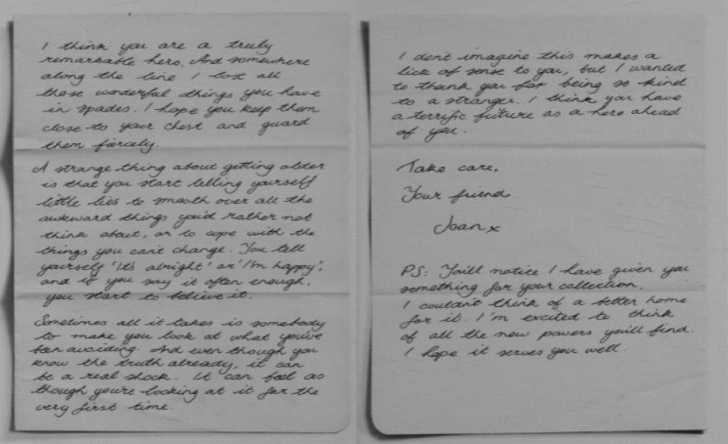 I think you are a truly
remarkable hero. And somewhere
along the line I lost all
those wonderful things you have
in spades. I hope you keep them
close to your chest and guard
them fiercely.
A strange thing about getting older
is that you start telling yourself
little lies to smooth over all the
awkward things you'd rather not
think about, or to cope with the
things you can't change. You tell
yourself 'it's alright' or 'I'm happy',
and if you say it often enough,
you start to believe it.
Sometimes all it takes is somebody
to make you look at what you've
been avoiding. And even though you
know the truth already, it can
be a real shock. It can feel as
though you're looking at it for the
very first time.
I don't imagine this makes a
lick of sense to you, but I wanted
to thank you for being so kind
to a stranger. I think you have
a terrific future as a hero ahead
of you.
Take care,
Your friend
Joan x
PS: You'll notice I have given you
something for your collection.
I couldn't think of a better home
for it. I'm excited to think
of all the new powers you'll find.
I hope it serves you well.